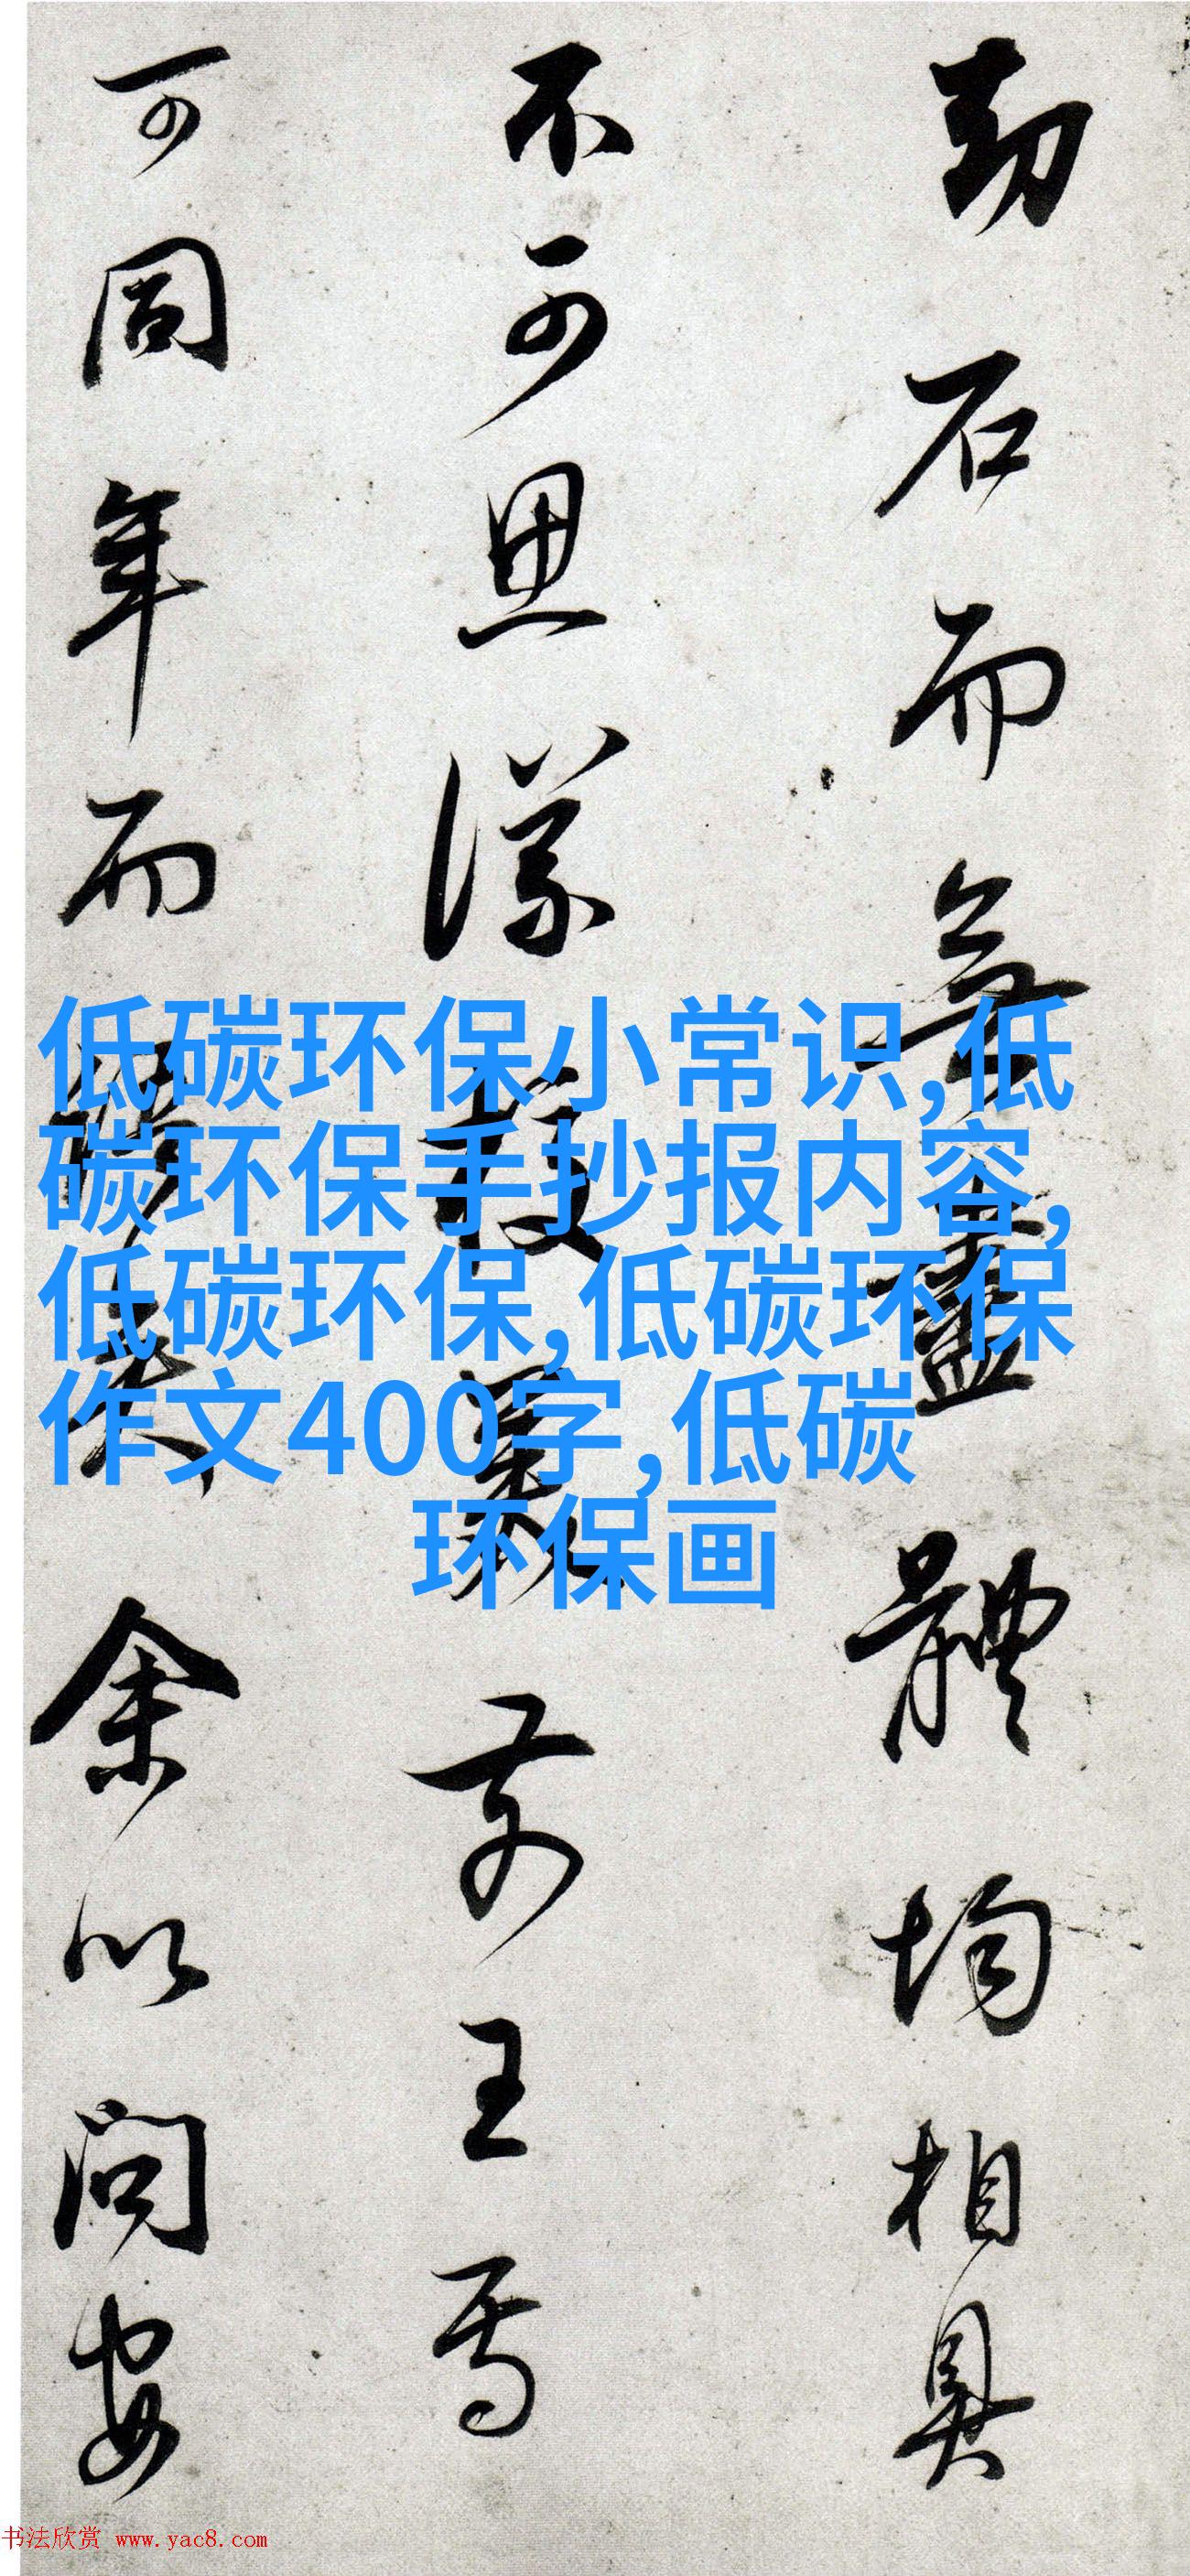 劫石而無盡體均相具
不可思議校量前王焉
可同年而語哉余以問安
低碳环保小常识,低
碳环保手抄报内容,
低碳环保,低碳环保
作文400字,低碳
环保画
书法欣赏 www.yac8.com